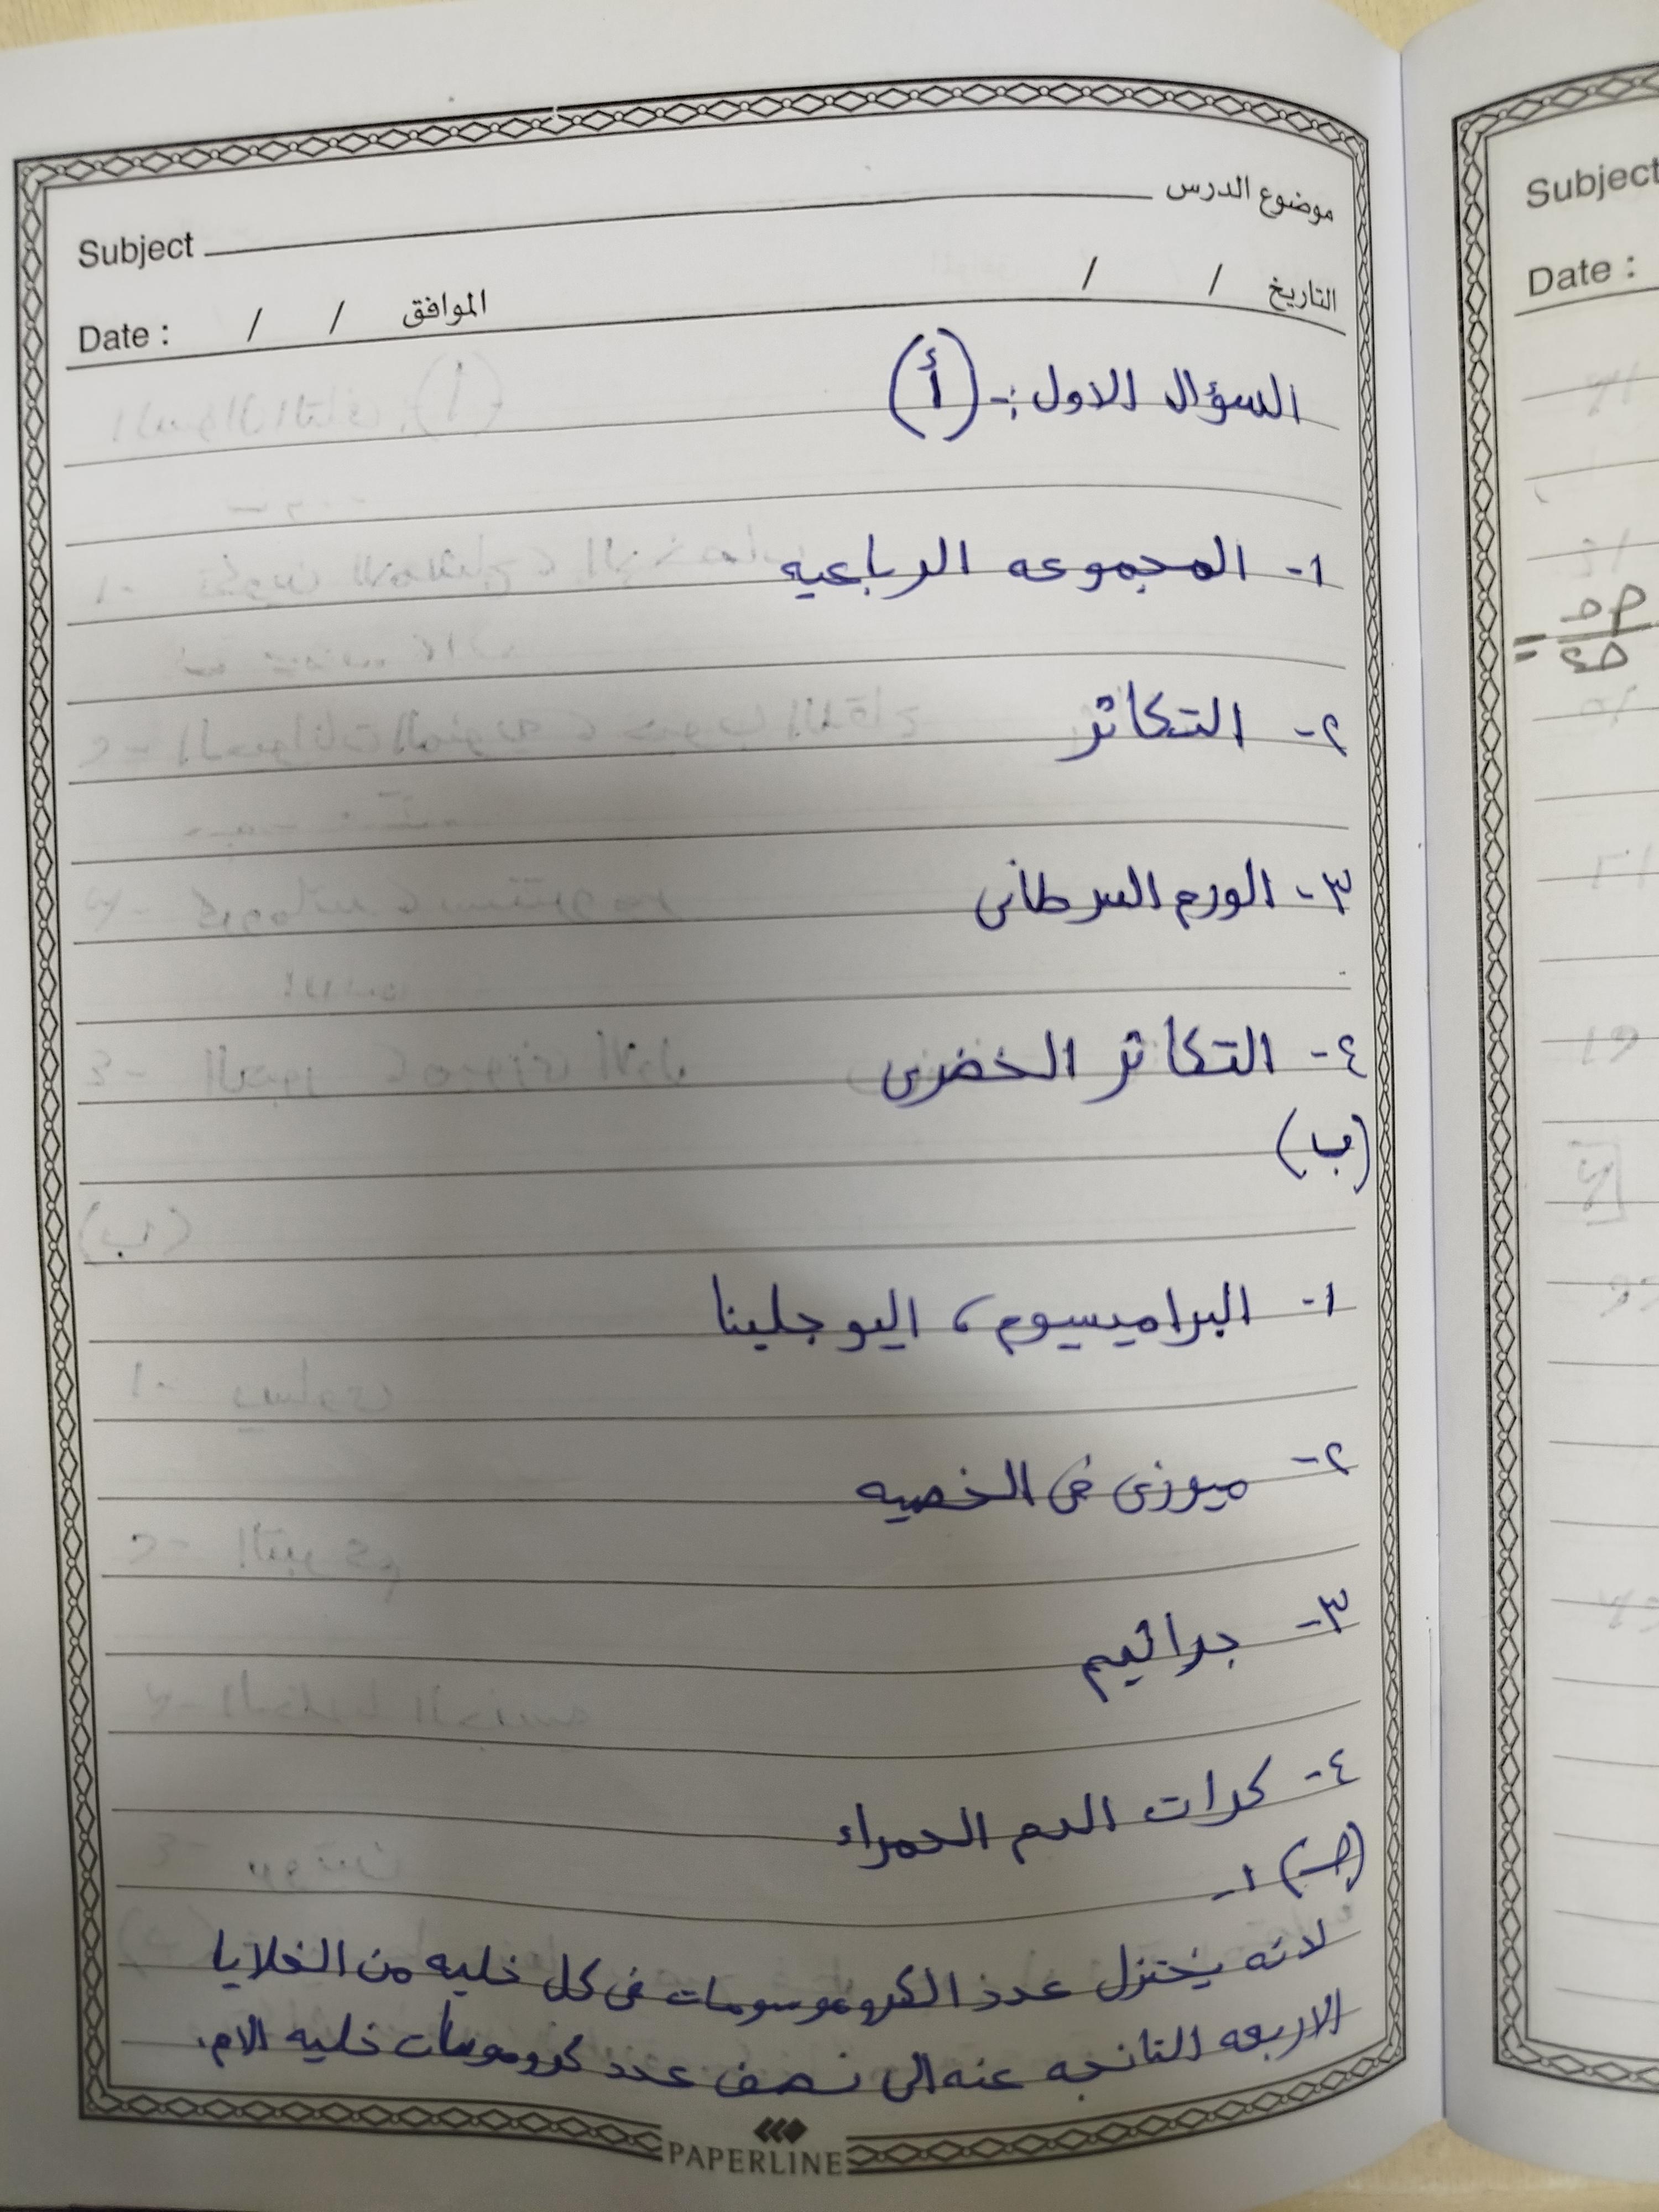 موضوع الدرس
Subject
التاريخ / /
الموافق / /
Date :
السؤال الاول :- (أ)
١- المجموعه الرباعيه
٢- التكاثر
٣- الورم السرطانى
٤- التكاثر الخضرى
(ب)
١- البراميسيوم ، اليوجلينا
٢- ميوزى فى الخصيه
٣- جراثيم
٤- كرات الدم الحمراء
(جـ) ١-
لانه يختزل عدد الكروموسومات فى كل خليه من الخلايا
الاربعه الناتجه عنه الى نصف عدد كروموسومات خليه الام.
PAPERLINE
Subject
Date :